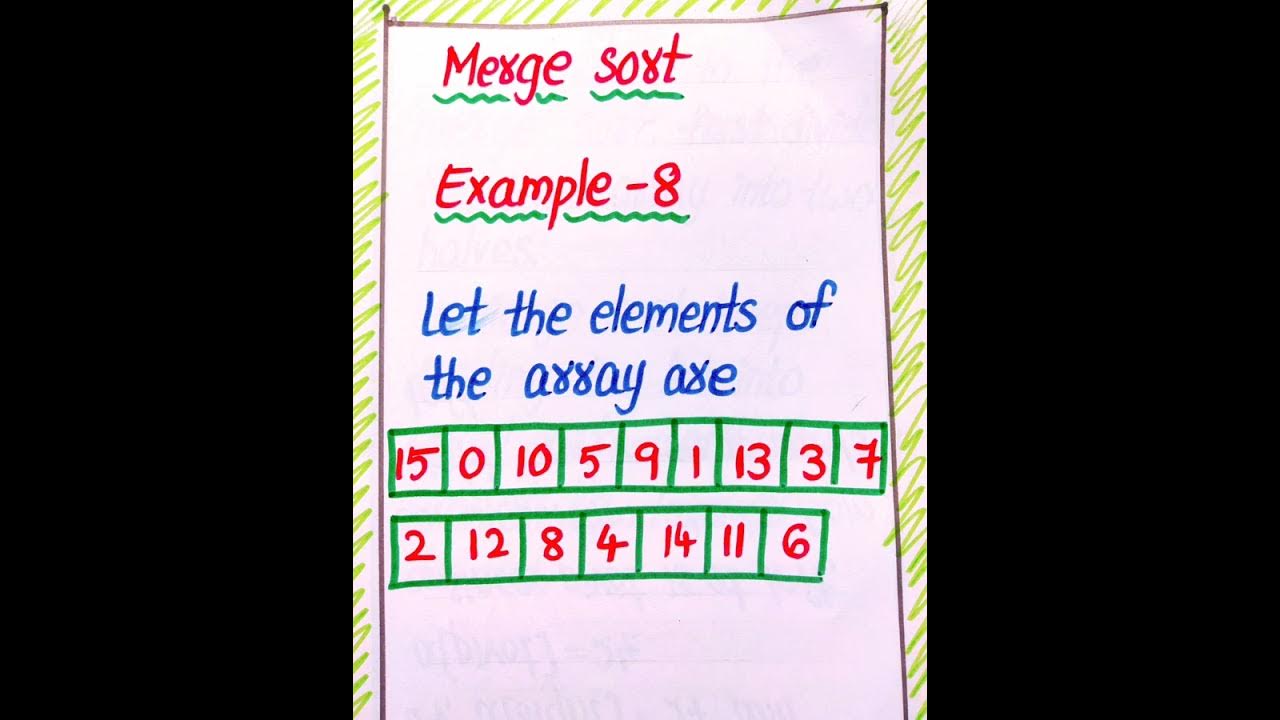 Merge sort
Example-8
Let the elements of
the array are
15 0 10 5 9 1 13 3 7
2 12 8 4 14 11 6